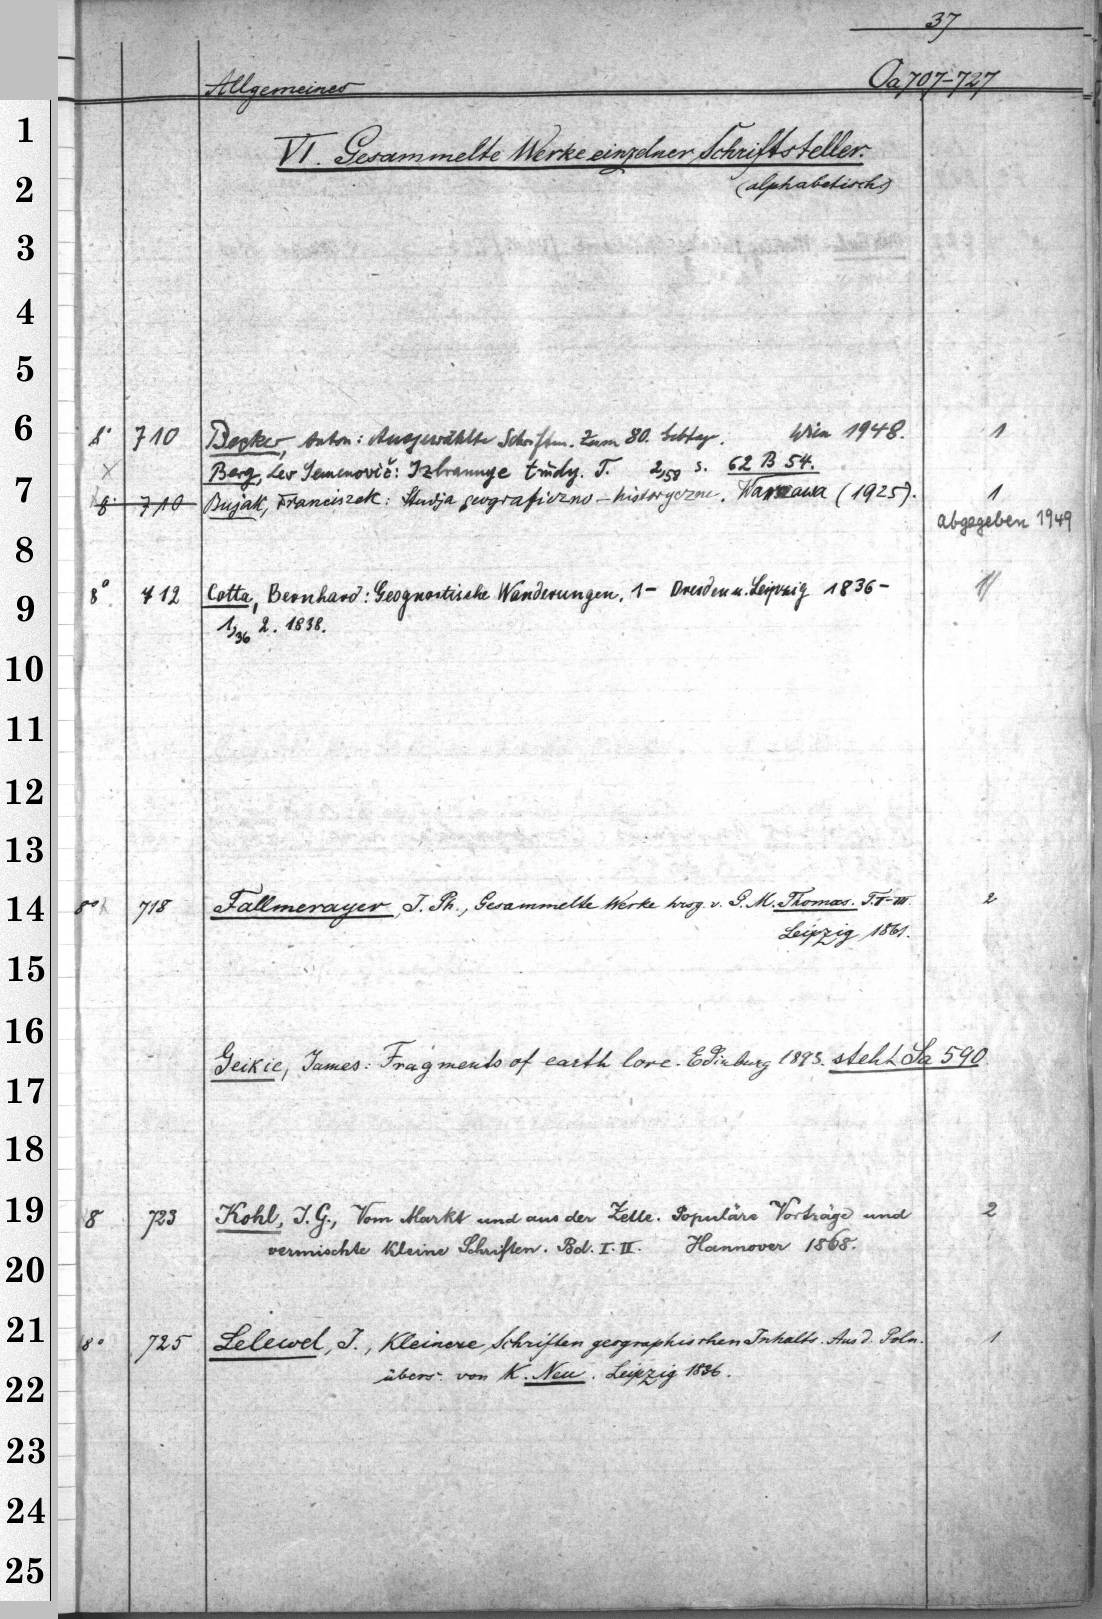 37
Allgemeines Oa 707-727
1
VI. Gesammelte Werke einzelner Schriftsteller.
2 (alphabetisch)
3
4
5
6 8° 710 Becker, Anton: Ausgewählte Schriften. Zum 80. Gebtag. Wien 1948. 1
× Berg, Lev Semenovič: Izbrannye trudy. T. 2,58 s. 62 B 54.
7 8° 710 Bujak, Franciszek: Studja geograficzno-historyczne. Warszawa (1925). 1
abgegeben 1949
8
9 8° 712 Cotta, Bernhard: Geognostische Wanderungen. 1- Dresden u. Leipzig 1836- 1
1,36 2. 1838.
10
11
12
13
14 8° 718 Fallmerayer, J. Ph., Gesammelte Werke hrsg. v. G. M. Thomas. T. I-III 2
Leipzig 1861.
15
16
Geikie, James: Fragments of earth lore. Edinburg 1893. steht Sa 590
17
18
19 8° 723 Kohl, J. G., Vom Markt und aus der Zelle. Populäre Vorträge und 2
vermischte kleine Schriften. Bd. I. II. Hannover 1868.
20
21 8° 725 Lelewel, J., Kleinere Schriften geographischen Inhalts. Aus d. Poln. 1
übers. von K. Neu. Leipzig 1836.
22
23
24
25